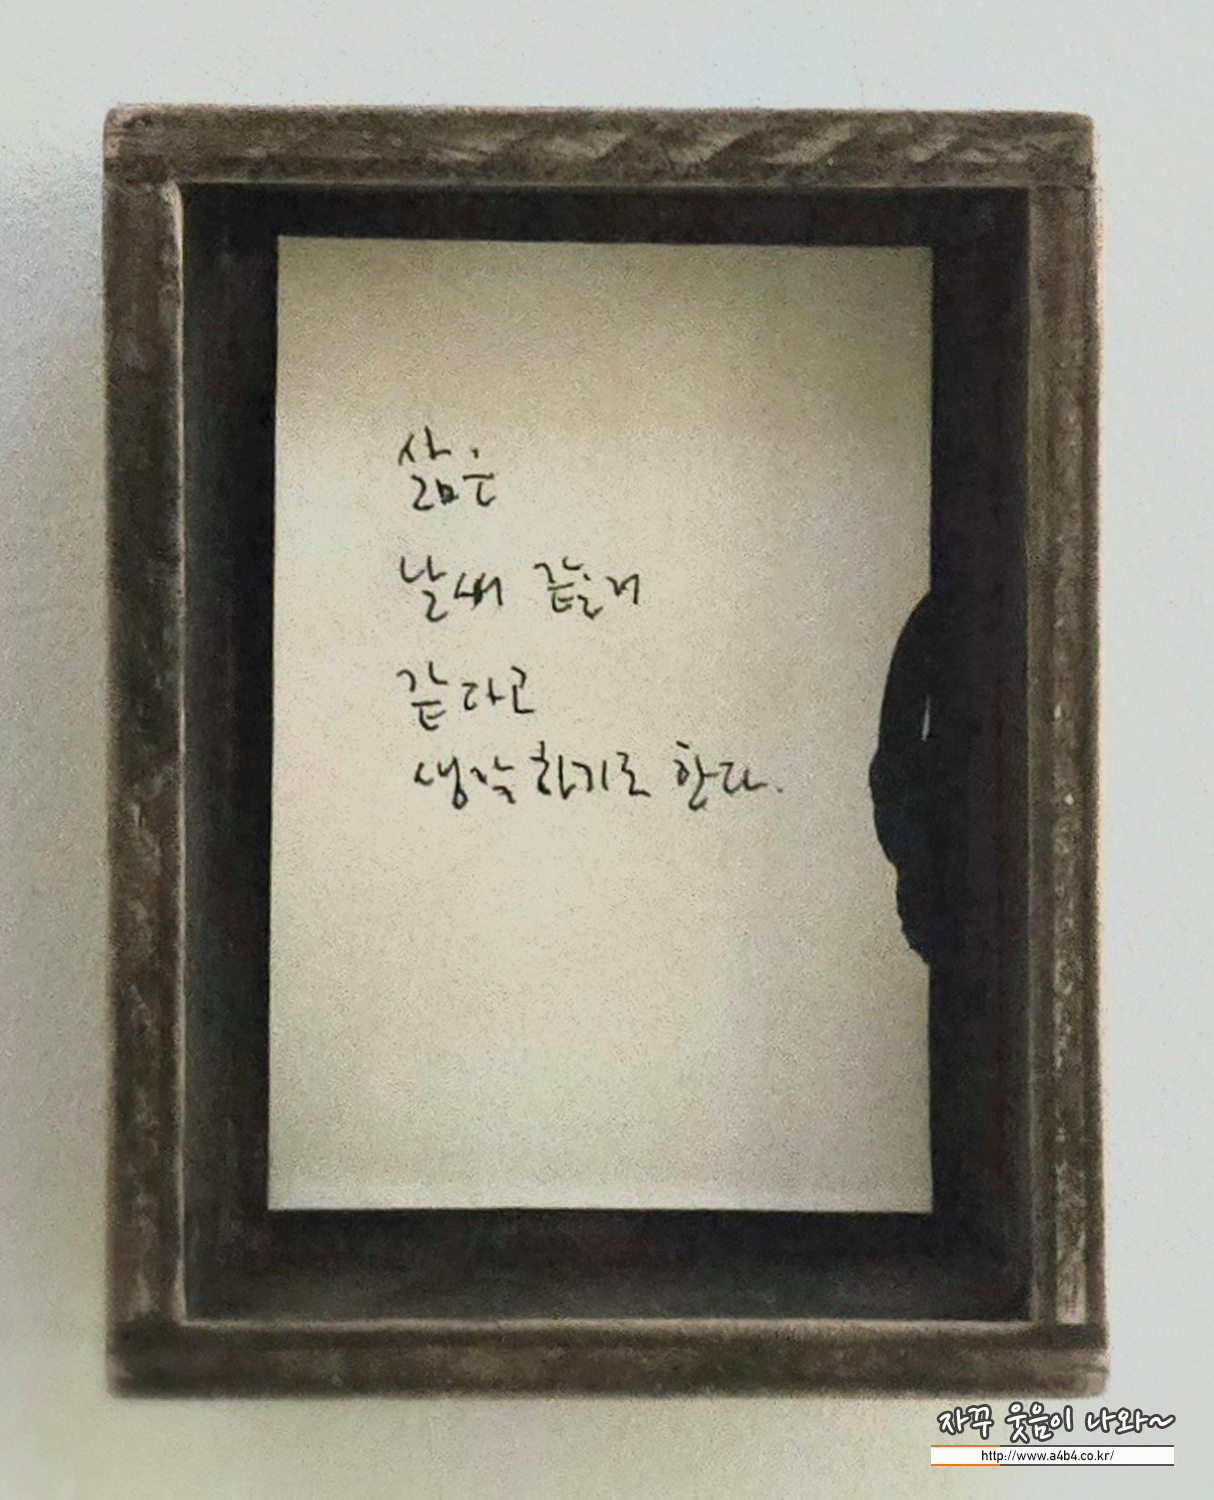 삶은
같을거
같다고
생각하기로 한다.
자꾸 웃음이 나와~
http://www.a4b4.co.kr/